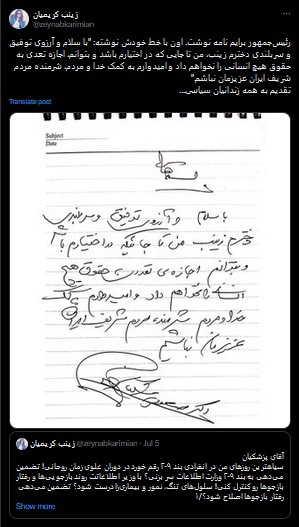 زینب کریمیان
@zeynabkarimian
رئیس‌جمهور برایم نامه نوشت. اون با خط خودش نوشته: "با سلام و آرزوی توفیق
و سربلندی دخترم زینب، من تا جایی که در اختیارم باشد و بتوانم، اجازه تعدی به
حقوق هیچ انسانی را نخواهم داد و امیدوارم به کمک خدا و مردم، شرمنده مردم
شریف ایران عزیزمان نباشم"
تقدیم به همه زندانیان سیاسی...
Translate post
Subject
Date
با سلام و آرزوی توفیق و سربلندی
دخترم زینب من تا جائیکه در اختیارم باشد
و بتوانم اجازه‌ی تعدی به حقوق هیچ
انسانی را نخواهم داد و امیدوارم به کمک
خدا و مردم شرمنده مردم شریف ایران
عزیزمان نباشم
زینب کریمیان @zeynabkarimian · Jul 5
آقای پزشکیان
سیاهترین روزهای من در انفرادی بند ۲۰۹ رقم خورد در دوران علوی زمان روحانی! تضمین
می‌دهی به بند ۲۰۹ وزارت اطلاعات سر بزنی؟ با وزیر اطلاعاتت روند بازجویی‌ها و رفتار
بازجوها رو کنترل کنی! سلول‌های تنگ، نمور و بیماری‌زا درست شود؟ تضمین می‌دهی
رفتار بازجوها اصلاح شود؟/۱
Show more